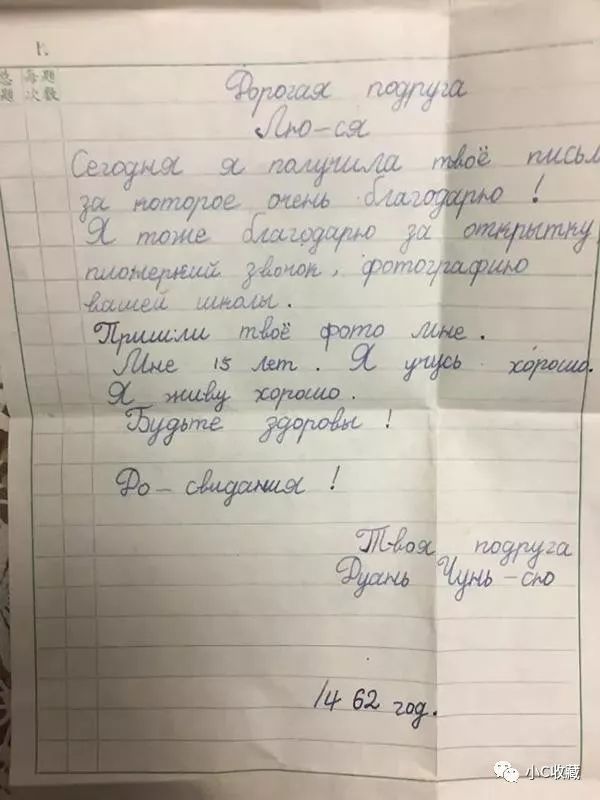 总 每题
题 次数
Дорогая подруга
Лю-ся
Сегодня я получила твоё письм
за которое очень благодарю!
Я тоже благодарю за открытку
пложеркий звочок, фотографию
вашей школы.
Пришли твоё фото мне.
Мне 15 лет. Я учусь хорошо.
Я живу хорошо.
Будьте здоровы!
До-свидания!
Твоя подруга
Дуань Чунь-сю
14 62 год.
小C收藏